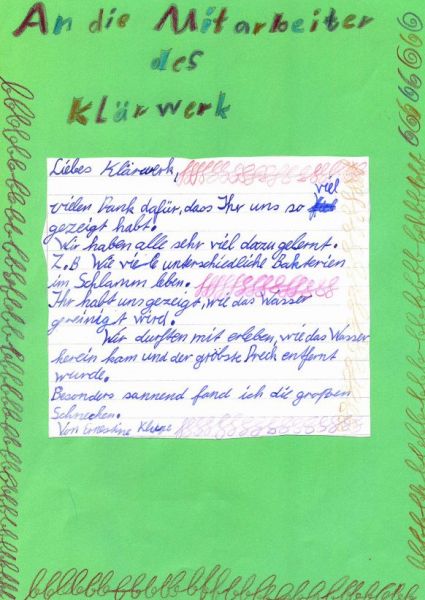 An die Mitarbeiter
des
Klärwerk
Liebes Klärwerk,
viel
vielen Dank dafür, dass Ihr uns so
gezeigt habt.
Wir haben alle sehr viel dazu gelernt.
Z.B Wie viele unterschiedliche Bakterien
im Schlamm leben.
Ihr habt uns gezeigt, wie das Wasser
gereinigt wird.
Wir durften mit erleben, wie das Wasser
herein kam und der gröbste Dreck entfernt
wurde.
Besonders sannend fand ich die großen
Schnecken.
Von Ernestine